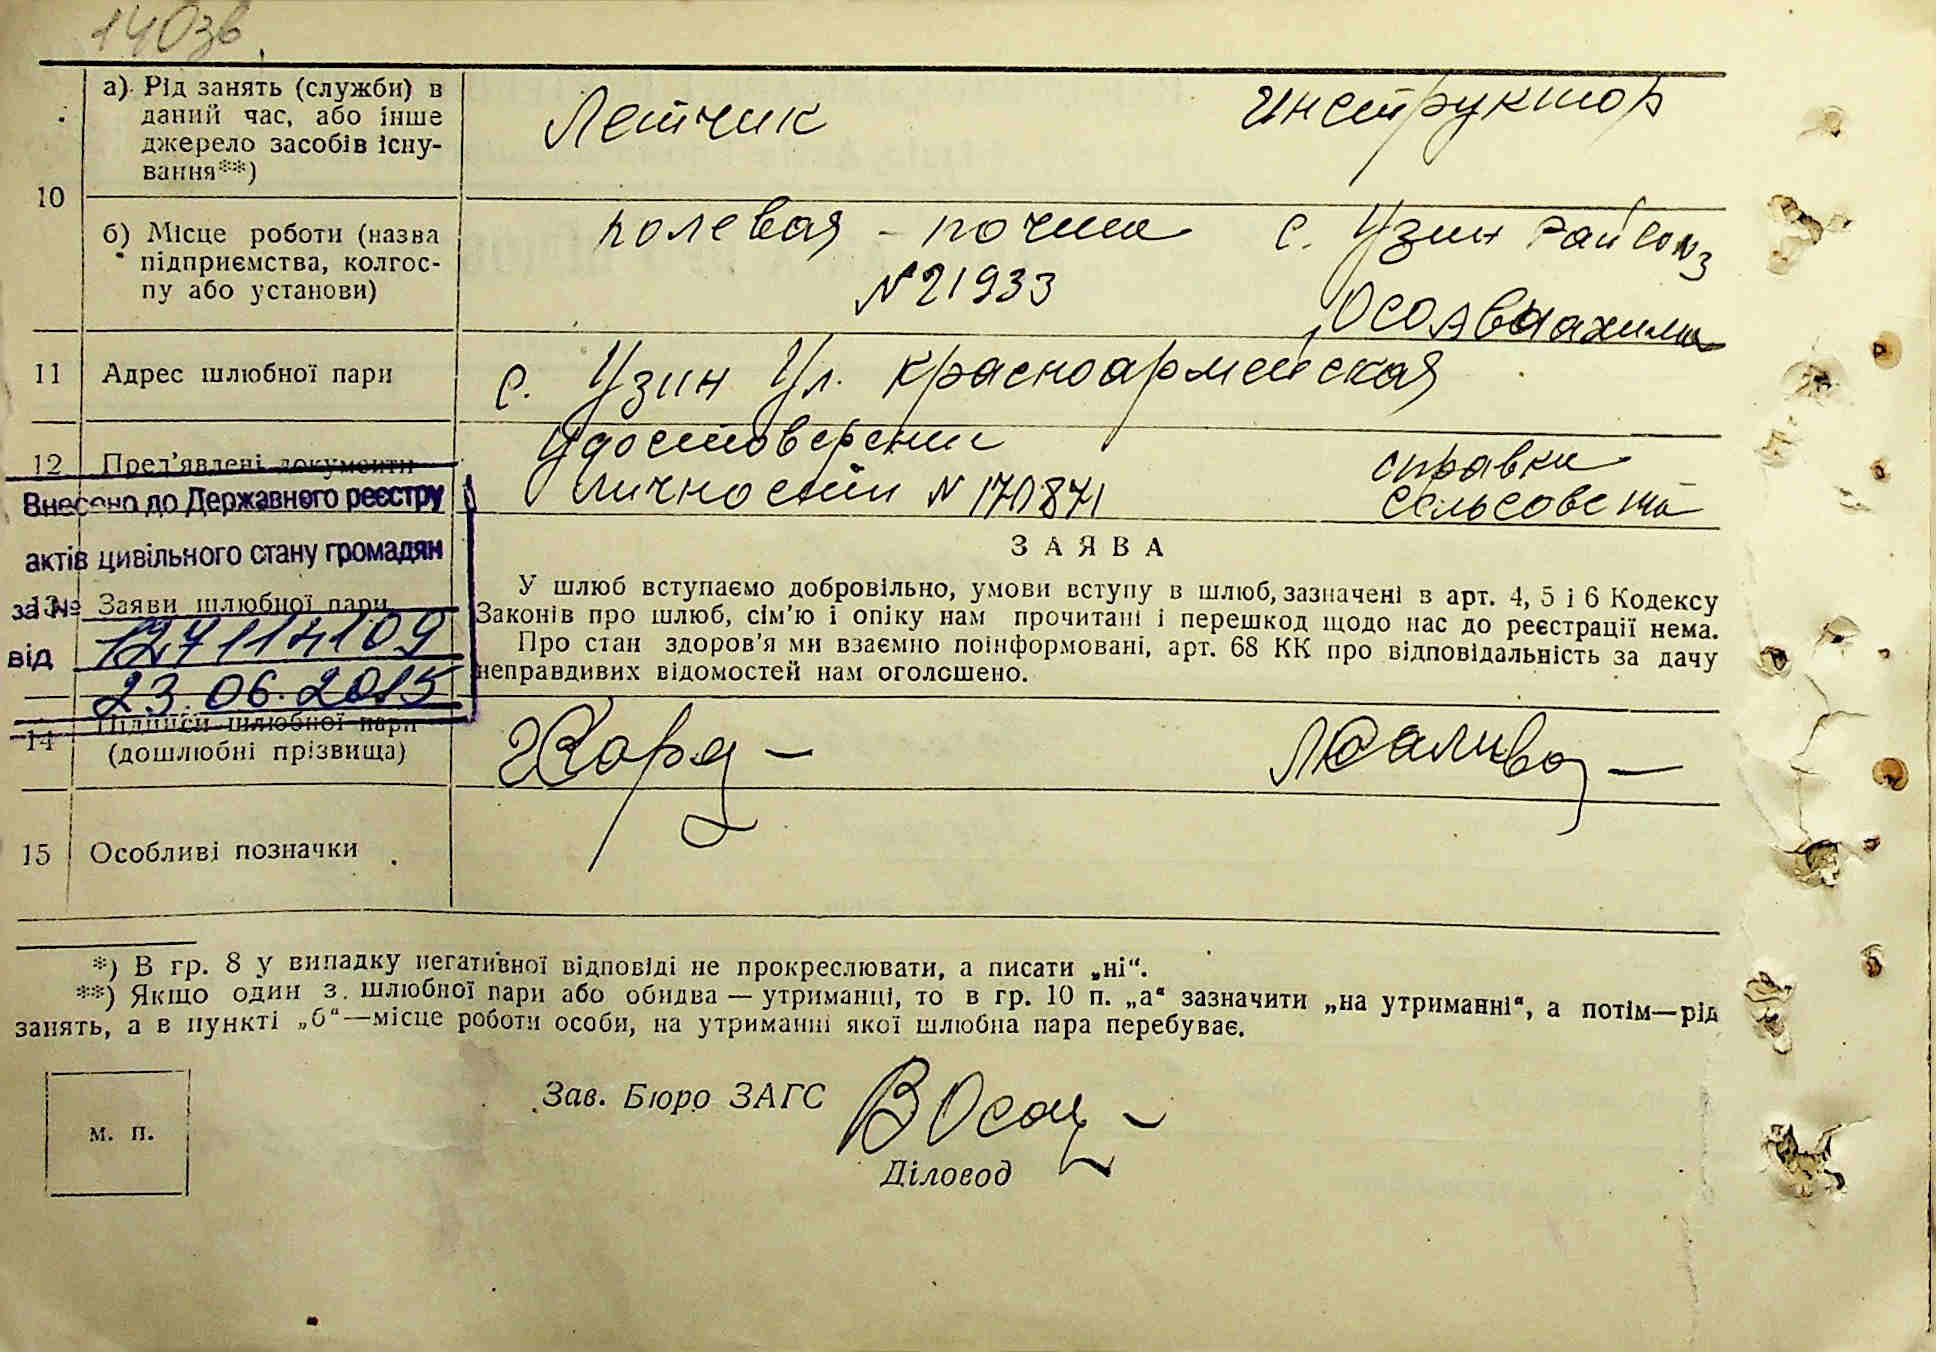 140зв
10
а) Рід занять (служби) в
даний час, або інше
джерело засобів існу-
вання**)
Летчик
инструктор
б) Місце роботи (назва
підприємства, колгос-
пу або установи)
полевая - почта
№ 21933
с. Узин Райсоюз
Осоавиахима
11 Адрес шлюбної пари
с. Узин Ул. Красноармейская
12 Пред'явлені документи
Удостоверение
личности № 170871
справки
сельсовета
Внесено до Державного реєстру
актів цивільного стану громадян
за №
127114109
від
23.06.2015
13 Заяви шлюбної пари
ЗАЯВА
У шлюб вступаємо добровільно, умови вступу в шлюб, зазначені в арт. 4, 5 і 6 Кодексу
Законів про шлюб, сім'ю і опіку нам прочитані і перешкод щодо нас до реєстрації нема.
Про стан здоров'я ми взаємно поінформовані, арт. 68 КК про відповідальність за дачу
неправдивих відомостей нам оголошено.
14 Підписи шлюбної пари
(дошлюбні прізвища)
15 Особливі позначки
*) В гр. 8 у випадку негативної відповіді не прокреслювати, а писати „ні“.
**) Якщо один з шлюбної пари або обидва — утриманці, то в гр. 10 п. „а“ зазначити „на утриманні“, а потім—рід
занять, а в пункті „б“—місце роботи особи, на утриманні якої шлюбна пара перебуває.
м. п.
Зав. Бюро ЗАГС
Діловод